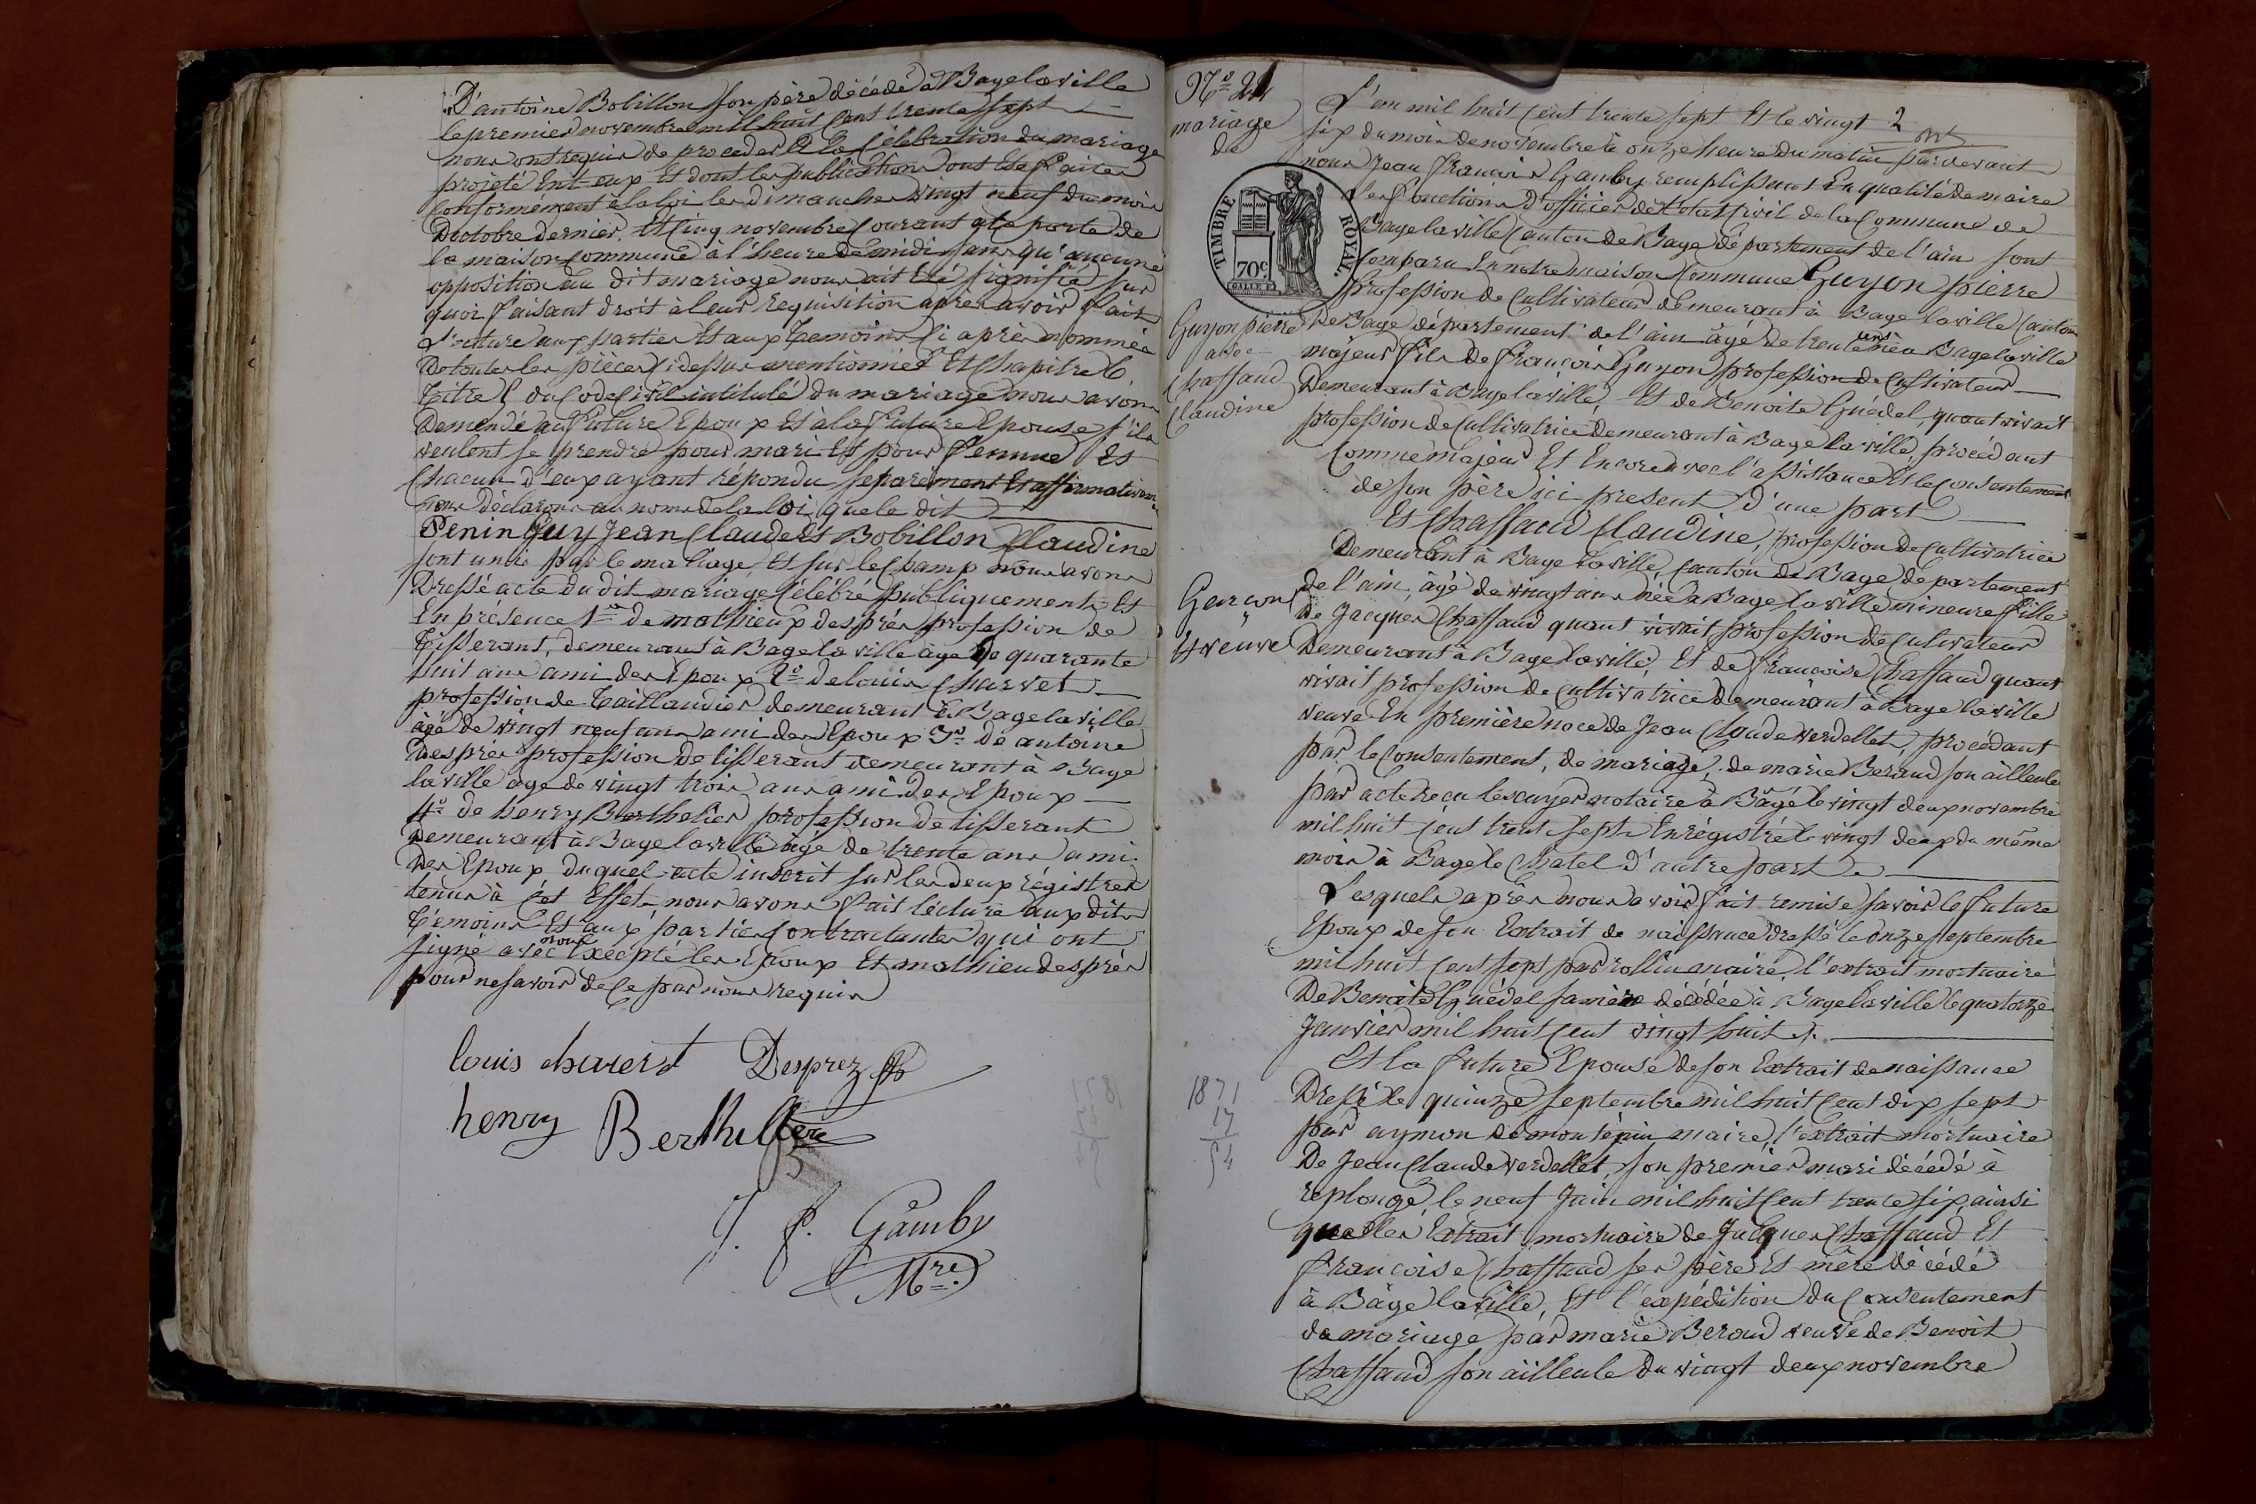 D'antoine Bobillon son père décédé à Bagelaville
le premier novembre mil huit cent trente sept
nous ont requis de proceder à la Célébration du mariage
projeté Ent eux Et dont les publications ont été faites
Conformément à la loi les dimanches vingt neuf du mois
D'octobre dernier Et Cinq novembre Courant à la porte de
la maison Commune à l'heure de midi sans qu'aucune
opposition au dit mariage nous ait été signifié sur
quoi faisant droit à leur requisition après avoir fait
lecture aux parties Et aux Temoins Ci après nommés
De toutes les pièces Ci dessus mentionnés Et Chapitre 6
Titre 5 du Code Civil intitulé du mariage nous avons
Demandé au Future Epoux Et à la Future Epouse s'ils
veulent se prendre pour mari Et pour femme Et
Chacun d'eux ayant répondu séparément Et affirmativem
nous déclarons au nom de la loi que le dit
Peninguy Jean Claude Et Bobillon Claudine
sont unis par le mariage Et sur le Champ nous avons
Dressé acte du dit mariage Célébré publiquement Et
En présence 1° de mathieux després profession de
Tisserant, demeurant à Bagelaville âgé de quarante
huit ans ami des Epoux 2° de louis Charvet
profession de Taillandier demeurant à Bagelaville
âgé de vingt neuf ans ami des Epoux 3° de antoine
després profession de tisserant demeurant à Bage
la ville âgé de vingt trois ans ami des Epoux
4° de henry Berthelier profession de tisserant
Demeurant à Bagelaville âgé de trente ans ami
Des Epoux duquel acte inscrit sur les deux régistres
tenus à cet Effet nous avons fait lecture aux dits
Témoins Et aux parties Contractantes qui ont
signé avec nous Excepté les Epoux Et mathieu després
pour ne savoir de Ce par nous requis
louis charvet Desprez
henry Berthellier
J. f. Gamby
Mre
N° 24
mariage
de
Guyon pierre
avec
Chaffaud
Claudine
Garçon
Et veuve
1871
17
54
TIMBRE ROYAL
70c
2
L'an mil huit Cent trente sept Et le vingt
six du mois de novembre à onze heure du matin pardevant
nous Jean François Gamby remplissant En qualité de maire
les fonctions d'officier de l'Etat Civil de la Commune de
Bagelaville Canton de Bagé département de l'ain sont
Comparu En notre maison Commune Guyon pierre
profession de Cultivateur demeurant à Bage laville Canton
De Bagé département de l'ain âgé de trente ans né à Bagelaville
majeur fils de François Guyon profession de Cultivateur
Demeurant à Bagelaville, Et de Benoite Guédel, quant vivait
profession de Cultivatrice demeurant à Bage la ville, procédant
Comme Majeur Et Encore avec l'assistance Et le Consentement
de son père ici present d'une part
Et Chaffaud Claudine, profession de Cultivatrice
Demeurant à Bage laville, Canton de Bagé departement
de l'ain, âgé de vingt ans née à Bage la ville mineure fille
De Jacques Chaffaud quant vivait profession de Cultivateur
Demeurant à Bagelaville, Et de françoise Chaffaud quant
vivait profession de Cultivatrice demeurant à Bage laville
veuve En première noce de Jean Claude verdellet, procédant
par le Consentement, de mariage, de marie Beraud son ailleule
par acte reçu lescuyer notaire à Bagé le vingt deux novembre
mil huit Cent trent sept Enrégistré le vingt deux du même
mois à Bagé le Chatel d'autre part.
Lesquels après nous avoir fait remise savoir le future
Epoux de son Extrait de naissance dressé le onze septembre
mil huit Cent sept par rollin maire, l'extrait mortuaire
De Benoite Guédel sa mère décédée à Bagelaville le quatorze
Janvier mil huit Cent vingt huit.
Et la future Epouse de son Extrait de naissance
Dressé le quinze septembre mil huit Cent dix sept
par aymon de montépin maire, l'extrait mortuaire
De Jean Claude verdellet son premier mari décédé à
replonge, le neuf Juin mil huit Cent trente six, ainsi
que les Extrait mortuaire de Jacques Chaffaud Et
françoise Chaffaud ses père Et mère décédé
à Bage laville, Et l'expédition du Consentement
de mariage par marie Beroud veuve de Benoit
Chaffaud son ailleule du vingt deux novembre